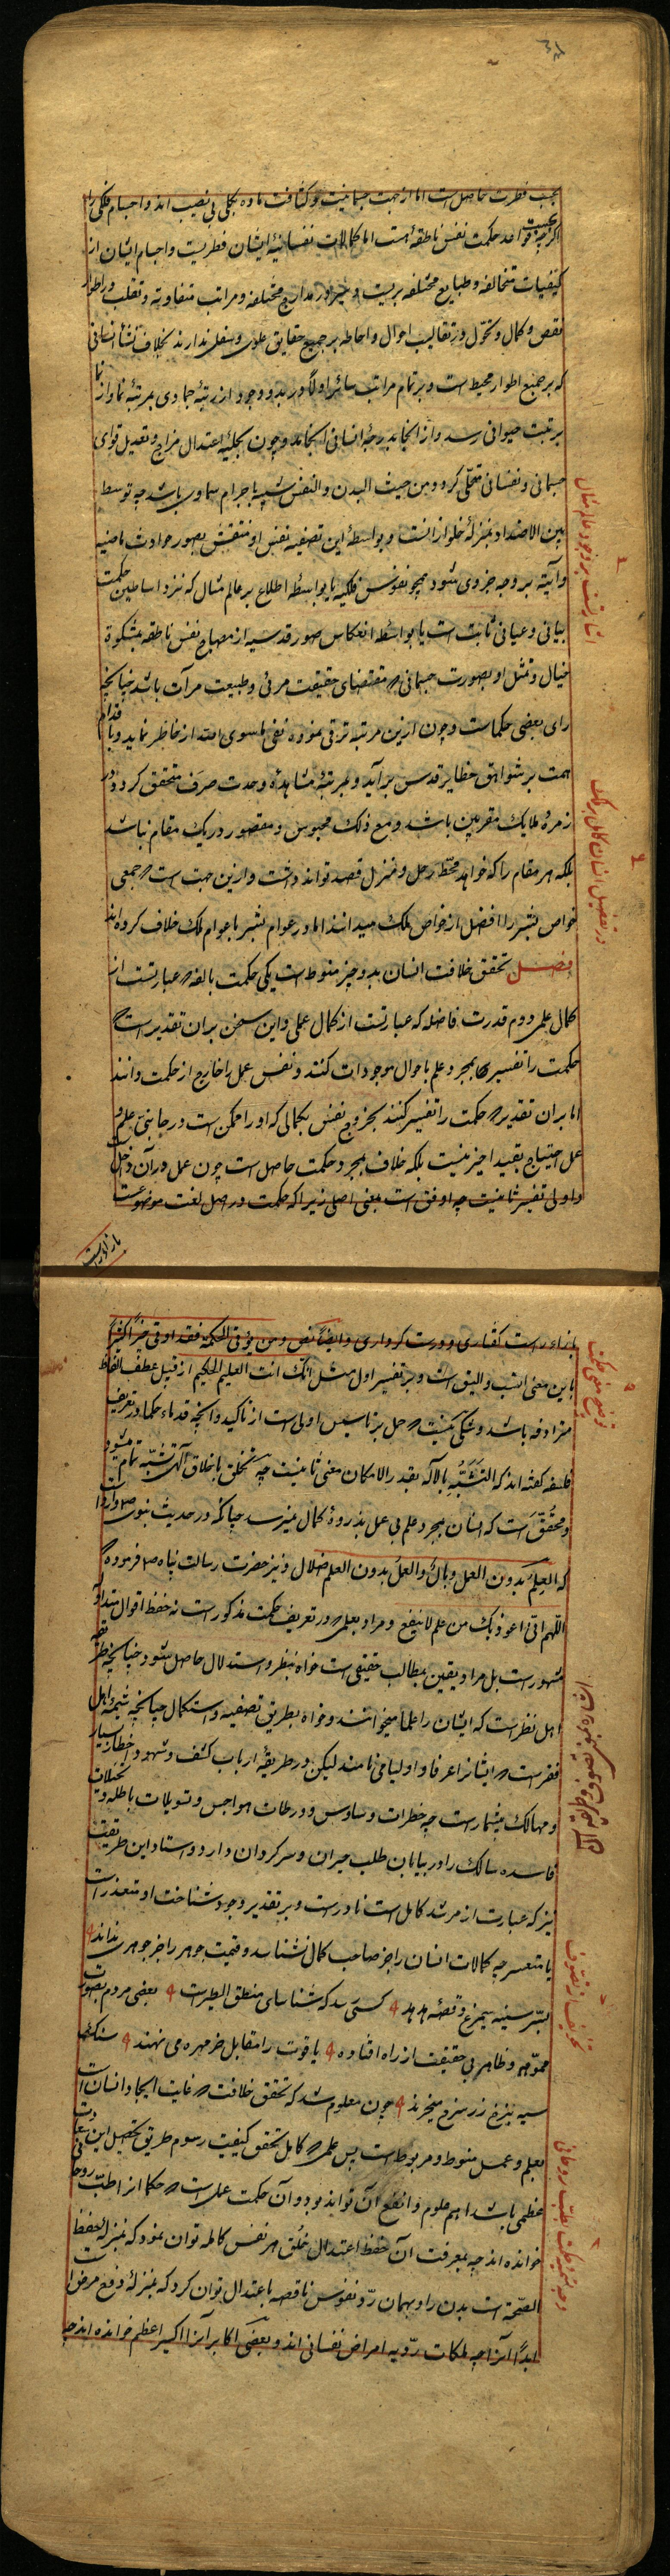 بحسب فطرت حاصل است اما از جهت جسمانیت و کثافت ماده بکلی بی نصیب اند و اجسام فلکی را
اگرچه بحسب قواعد حکمت نفس ناطقه است اما کمالات نفسانیهٔ ایشان فطریست و اجسام ایشان از
کیفیات متخالفه و طبایع مختلفه بریست و سیر در مدارج مختلفه و مراتب متفاوته و تقلب در اطوار
نقص و کمال و تحول در تقالیب احوال و احاطه بر جمیع حقایق علوی و سفلی ندارند بخلاف نشأ انسانی
که بر جمیع اطوار محیط است و بر تمام مراتب سائر اولا در بدو وجود از رتبهٔ جمادی بمرتبهٔ نما و از نما
برتبت حیوانی رسد و از آنجا بدرجهٔ انسانی انجامد و چون بحلیهٔ اعتدال مزاج و تعدیل قوای
جسمانی و نفسانی متحلی گردد من حیث البدن والنفس شبیه باجرام سماوی باشد چه توسط
بین الاضداد بمنزلهٔ خلو از انست و بواسطهٔ این تصفیه نفس او منتقش بصور حوادث ماضیه
و آتیه بر وجه جزوی شود همچو نفوس فلکیه یا بواسطه اطلاع بر عالم مثال که نزد اساطین حکمت
بیانی و عیانی ثابت است یا بواسطهٔ انعکاس صور قدسیه از مصباح نفس ناطقه بمشکوة
خیال و تمثل او بصورت جسمانی که مقتضای حقیقت مرئی و طبیعت مرآت باشد چنانچه
رای بعضی حکماست و چون ازین مرتبه ترقی نموده نفی ماسوی الله از خاطر نماید و باقدام
همت بر شواهق حظایر قدس برآید و بمرتبهٔ مشاهدهٔ وحدت صرف متحقق گردد در
زمرهٔ ملایک مقربین باشد و مع ذلک محبوس و مقصور در یک مقام نباشد
بلکه هر مقام را که خواهد محط رحل و منزل قصد تواند داشت و ازین جهت است که جمعی
خواص بشر را افضل از خواص ملک میدانند اما در عوام بشر با عوام ملک خلاف کرده اند
فصل تحقق خلافت انسان بدو چیز منوط است یکی حکمت بالغه که عبارتست از
کمال علمی دوم قدرت فاضله که عبارتست از کمال عملی و این سخن بران تقدیر است که
حکمت را تفسیر بمجرد علم باحوال موجودات کنند و نفس عمل را خارج از حکمت دانند
اما بران تقدیر که حکمت را تفسیر کنند بخروج نفس بکمالی که او را ممکن است در جانبی علم و
عمل احتیاج بقید اخیر نیست بلکه خلافت بمجرد حکمت حاصل است چون عمل در آن داخل است
و اولی تفسیر ثانیست چه اوفق است بمعنی اصلی زیرا که حکمت در اصل لغت موضوعست
بازاء راست
اشارتست بر وجود عالم مثال
در تفضیل انسان کامل بر ملک
بازاء راست گفتاری و درست کرداری و ایضاً نص و من یؤتی الحکمة فقد اوتی خیراً کثیراً
باین معنی انسب و الیق است و بر تفسیر اول مثل انک انت العلیم الحکیم از قبیل عطف الفاظ
مترادفه باشد و شکی نیست که حمل بر تاسیس اولی است از تاکید و آنچه قدماء حکما در تعریف
فلسفه گفته اند که التَشَبُّهُ بِالآله بقدر الامکان معنی ثانیست چه تخلق باخلاق الهی تشبّه تمام میشود
و محقّق است که انسان بمجرد علم بی عمل بذروهٔ کمال نمیرسد چنانکه در حدیث نبوی ص وارد است
که العلمُ بدون العمل وبالٌ والعملُ بدون العلم ضلال و نیز حضرت رسالت پناه ص فرموده که
اللّهم انی اعوذ بک من علم لاینفع و مراد بعلمی که در تعریف حکمت مذکور است نه حفظ اقوال متداوله
مشهور است بل مراد یقین بمطالب حقیقی است خواه بنظر و استدلال حاصل شود چنانچه طریقه
اهل نظر است که ایشان را علما میخوانند و خواه بطریق تصفیه و استکمال چنانچه شیمهٔ اهل
فقر است که ایشانرا عرفا و اولیا می نامند لیکن در طریقهٔ ارباب کشف و شهود اخطار بسیار
و مهالک بیشمار است چه خطرات وساوس و ورطات هواجس و تسویلات باطله و تخیلات
فاسده سالک را در بیابان طلب حیران و سرگردان دارد و استاد این طریقت
نیز که عبارت از مرشد کامل است نادرست و بر تقدیر وجود شناخت او متعذر است
یا متعسر چه کمالات انسان را جز صاحب کمال نشناسد و قیمت جوهر را جز جوهری نداند
بسر سینه سیمرغ و قصهٔ هدهد کسی رسد که شناسای منطق الطیر است بعضی مردم بصورت
مموّهه و ظاهر بی حقیقت از راه افتاده یاقوت را مقابل خرمهره می نهند سنگ
سیه بنرخ زر سرخ میخرند چون معلوم شد که تحقق خلافت که غایت ایجاد انسان است
بعلم و عمل منوط و مربوط است پس علمی که کامل تحقق کیفیت رسوم طریق تحصیل این سعادت
عظمی باشد اهم علوم و انفع آن تواند بود و آن حکمت عملی است که حکما آنرا طب روحانی
خوانده اند چه بمعرفت آن حفظ اعتدال خُلق هر نفس کامله توان نمود که بمنزلهٔ حفظ
الصحّة است بدن را و بهمان ردّ نفوس ناقصه باعتدال توان کرد که بمنزلهٔ دفع مرض است
ابدان را چه ملکات ردّیه امراض نفسانی اند و بعضی اکابر آنرا اکسیر اعظم خوانده اند چه
توضیح معنی حکمت
تحریف از تصوف
وجه تسمیه حکمت بطب روحانی